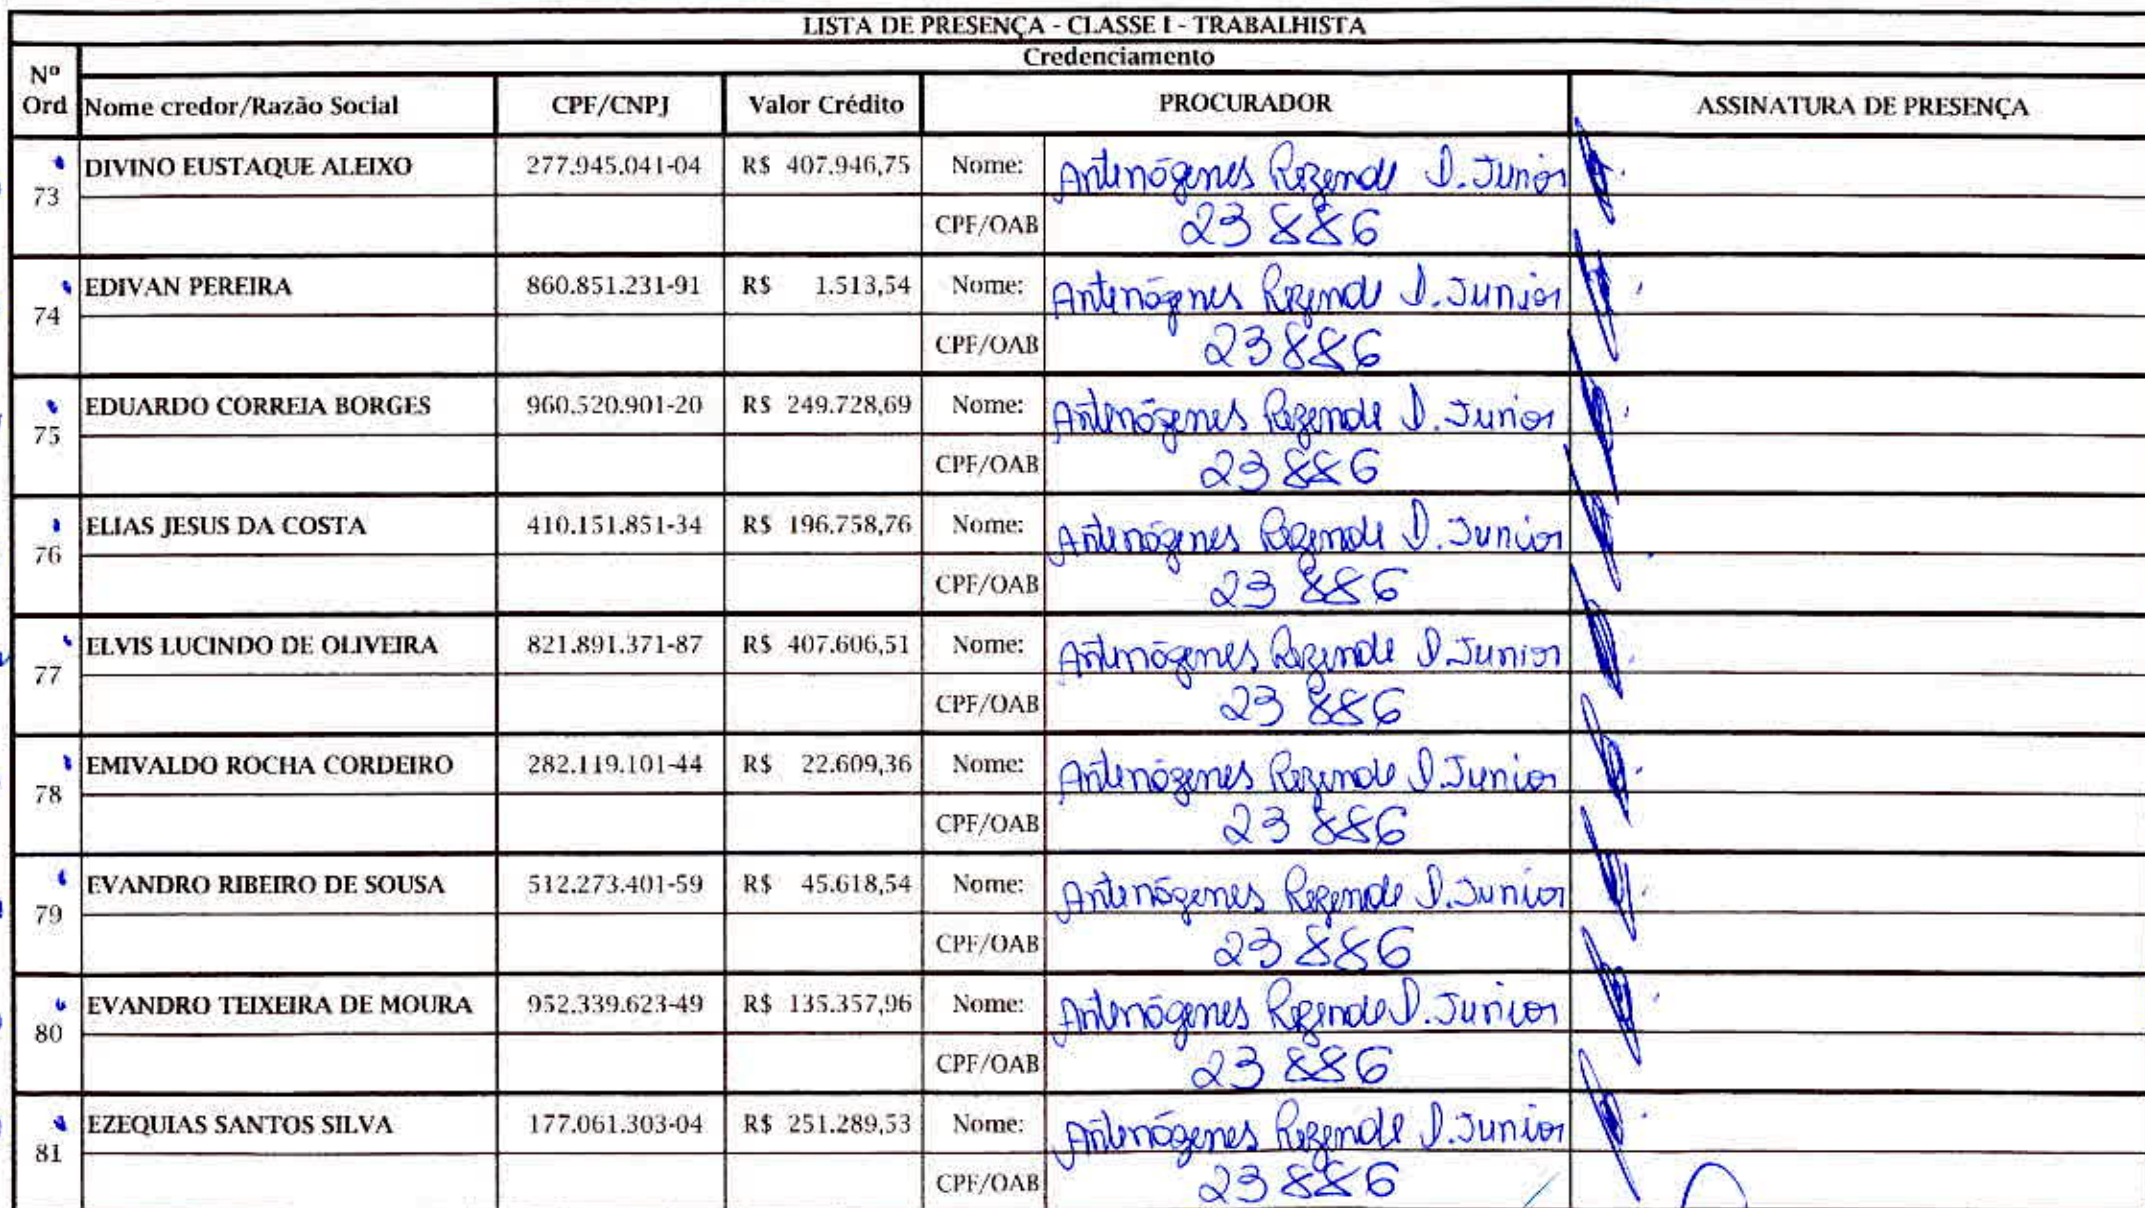 LISTA DE PRESENÇA - CLASSE I - TRABALHISTA
Credenciamento
Nº Ord Nome credor/Razão Social CPF/CNPJ Valor Crédito PROCURADOR ASSINATURA DE PRESENÇA
73 DIVINO EUSTAQUE ALEIXO 277.945.041-04 R$ 407.946,75 Nome: Antenógenes Rezende D. Junior
CPF/OAB 23886
74 EDIVAN PEREIRA 860.851.231-91 R$ 1.513,54 Nome: Antenógenes Rezende D. Junior
CPF/OAB 23886
75 EDUARDO CORREIA BORGES 960.520.901-20 R$ 249.728,69 Nome: Antenógenes Rezende D. Junior
CPF/OAB 23886
76 ELIAS JESUS DA COSTA 410.151.851-34 R$ 196.758,76 Nome: Antenógenes Rezende D. Junior
CPF/OAB 23886
77 ELVIS LUCINDO DE OLIVEIRA 821.891.371-87 R$ 407.606,51 Nome: Antenógenes Rezende D. Junior
CPF/OAB 23886
78 EMIVALDO ROCHA CORDEIRO 282.119.101-44 R$ 22.609,36 Nome: Antenógenes Rezende D. Junior
CPF/OAB 23886
79 EVANDRO RIBEIRO DE SOUSA 512.273.401-59 R$ 45.618,54 Nome: Antenógenes Rezende D. Junior
CPF/OAB 23886
80 EVANDRO TEIXEIRA DE MOURA 952.339.623-49 R$ 135.357,96 Nome: Antenógenes Rezende D. Junior
CPF/OAB 23886
81 EZEQUIAS SANTOS SILVA 177.061.303-04 R$ 251.289,53 Nome: Antenógenes Rezende D. Junior
CPF/OAB 23886